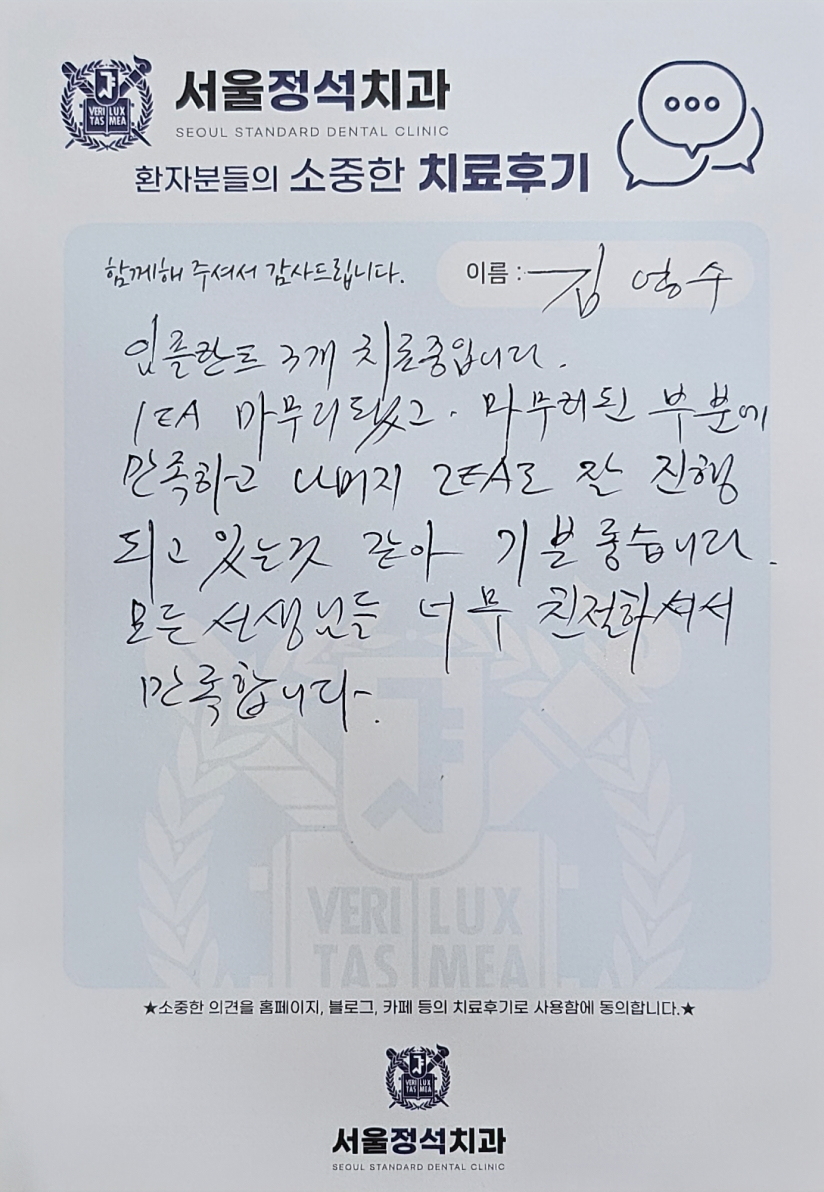 VERI LUX
TAS MEA
서울정석치과
SEOUL STANDARD DENTAL CLINIC
환자분들의 소중한 치료후기
함께해 주셔서 감사드립니다.
이름 : 김영수
임플란트 3개 치료중입니다.
1EA 마무리되었고. 마무리된 부분에
만족하고 나머지 2EA도 잘 진행
되고 있는것 같아 기분 좋습니다.
모든 선생님들 너무 친절하셔서
만족합니다.
VERI LUX
TAS MEA
★소중한 의견을 홈페이지, 블로그, 카페 등의 치료후기로 사용함에 동의합니다.★
VERI LUX
TAS MEA
서울정석치과
SEOUL STANDARD DENTAL CLINIC